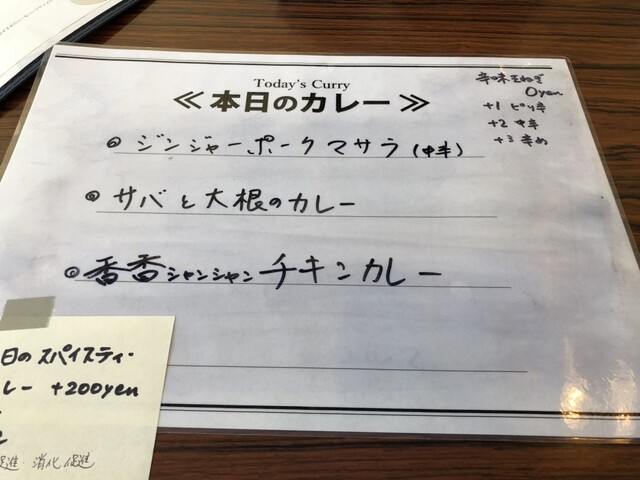 Today's Curry
≪本日のカレー≫
辛味玉ねぎ
0yen
+1 ピリ辛
+2 中辛
+3 辛め
ジンジャーポークマサラ(中辛)
サバと大根のカレー
香香シャンシャンチキンカレー
日のスパイスティ・
レー +200yen
促進・消化促進